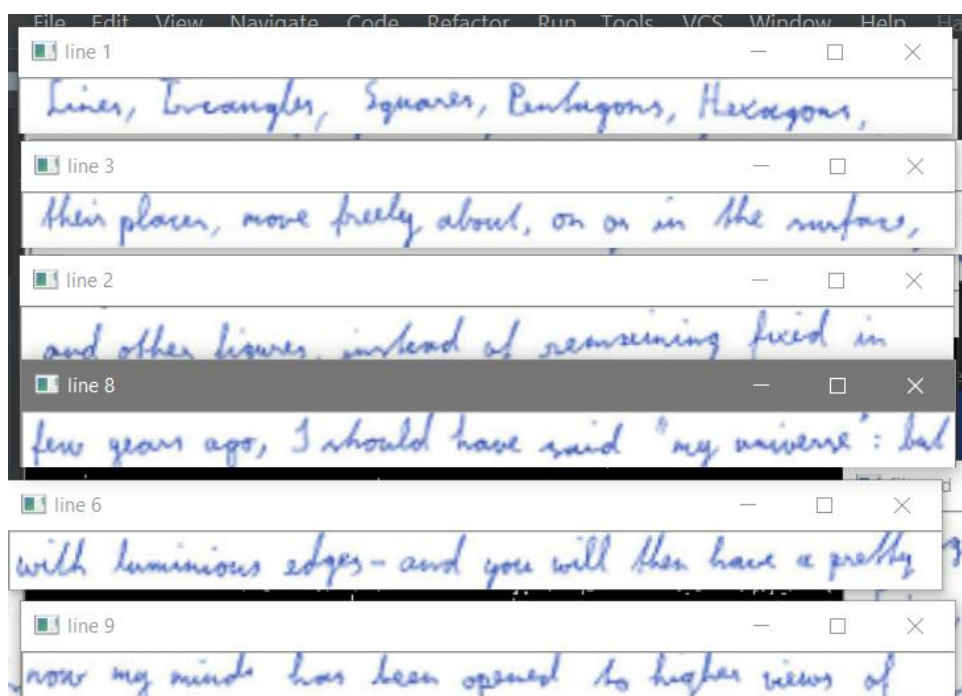 File Edit View Navigate Code Refactor Run Tools VCS Window Help Ha
line 1
Lines, Treangles, Squares, Pentagons, Hexagons,
line 3
their places, move freely about, on or in the surface,
line 2
and other figures, instead of remaining fixed in
line 8
few years ago, I should have said "my universe": but
line 6
with luminious edges - and you will then have a pretty
line 9
now my mind has been opened to higher views of